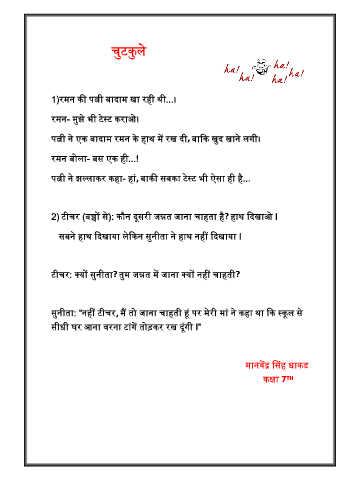 चुटकुले
ha! ha! ha! ha! ha!
1)रमन की पत्नी बादाम खा रही थी...।
रमन- मुझे भी टेस्ट कराओ।
पत्नी ने एक बादाम रमन के हाथ में रख दी, बाकि खुद खाने लगी।
रमन बोला- बस एक ही...!
पत्नी ने झल्लाकर कहा- हां, बाकी सबका टेस्ट भी ऐसा ही है...
2) टीचर (बच्चों से): कौन दूसरी जन्नत जाना चाहता है? हाथ दिखाओ ।
सबने हाथ दिखाया लेकिन सुनीता ने हाथ नहीं दिखाया ।
टीचर: क्यों सुनीता? तुम जन्नत में जाना क्यों नहीं चाहती?
सुनीता: "नहीं टीचर, मैं तो जाना चाहती हूं पर मेरी मां ने कहा था कि स्कूल से
सीधी घर आना वरना टांगें तोड़कर रख दूंगी ।"
मानवेंद्र सिंह धाकड
कक्षा 7TH